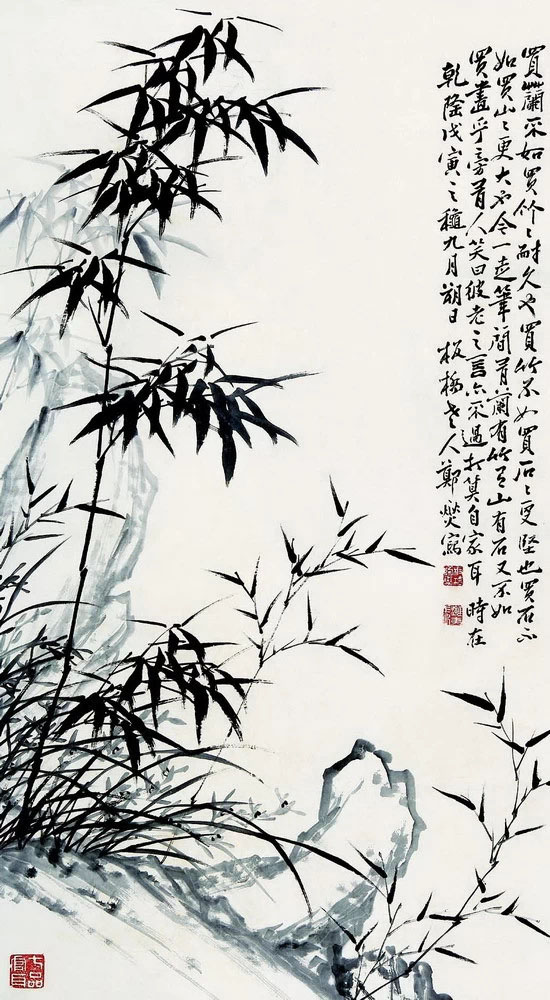 買蘭不如買竹竹耐久也買竹不如買石石更堅也買石不
如買山山更大也今一走筆間有蘭有竹有山有石又不如
買畫乎旁有人笑曰彼老之言亦不過打算自家耳時在
乾隆戊寅之穐九月朔日板橋老人鄭燮寫
七品官耳